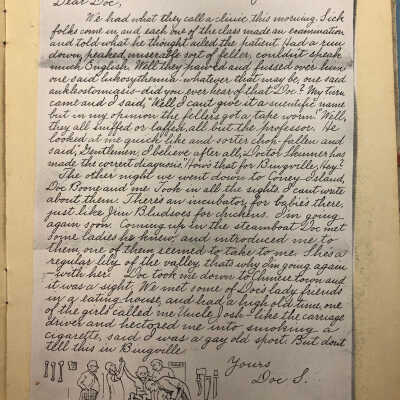 Dear Doc,
We had what they call a clinic this morning. Sick
folks come in and each one of the class made an examination
and told what he thought ailed the patient. Had a run
down, peaked, miserable sort of feller, couldn't speak
much English. Well they pawed and fussed over him,
one said lukosythemia - whatever that may be, one said
anklostomasis - did you ever hear of that Doc? My turn
came and I said, "Well I can't give it a scientific name
but in my opinion the feller's got a tape worm." Well,
they all sniffed or laffed, all but the professor. He
looked at me quick like and sorter chop-fallen and
said, "Gentlemen, I believe after all, Doctor Skinner has
made the correct diagnosis." How's that for Bingville, Hey?
The other night we went down to Coney Island,
Doc Bone and me. Took in all the sights, I can't write
about them. There's an incubator for babies there,
just like Jim Bludsoes for chickens. I'm going
again soon. Coming up in the steamboat Doc met
some ladies he knew, and introduced me to
them, one of them seemed to take to me. She's a
regular lily of the valley, that's why I'm going again
- with her. Doc took me down to Chinese town and
it was a sight. We met some of Doc's lady friends
in a eating house, and had a high old time, one
of the girls called me Uncle Josh - like the carriage
driver and hectored me into smoking a
cigarette, said I was a gay old sport. But don't
tell this in Bingville
Yours
Doc S.